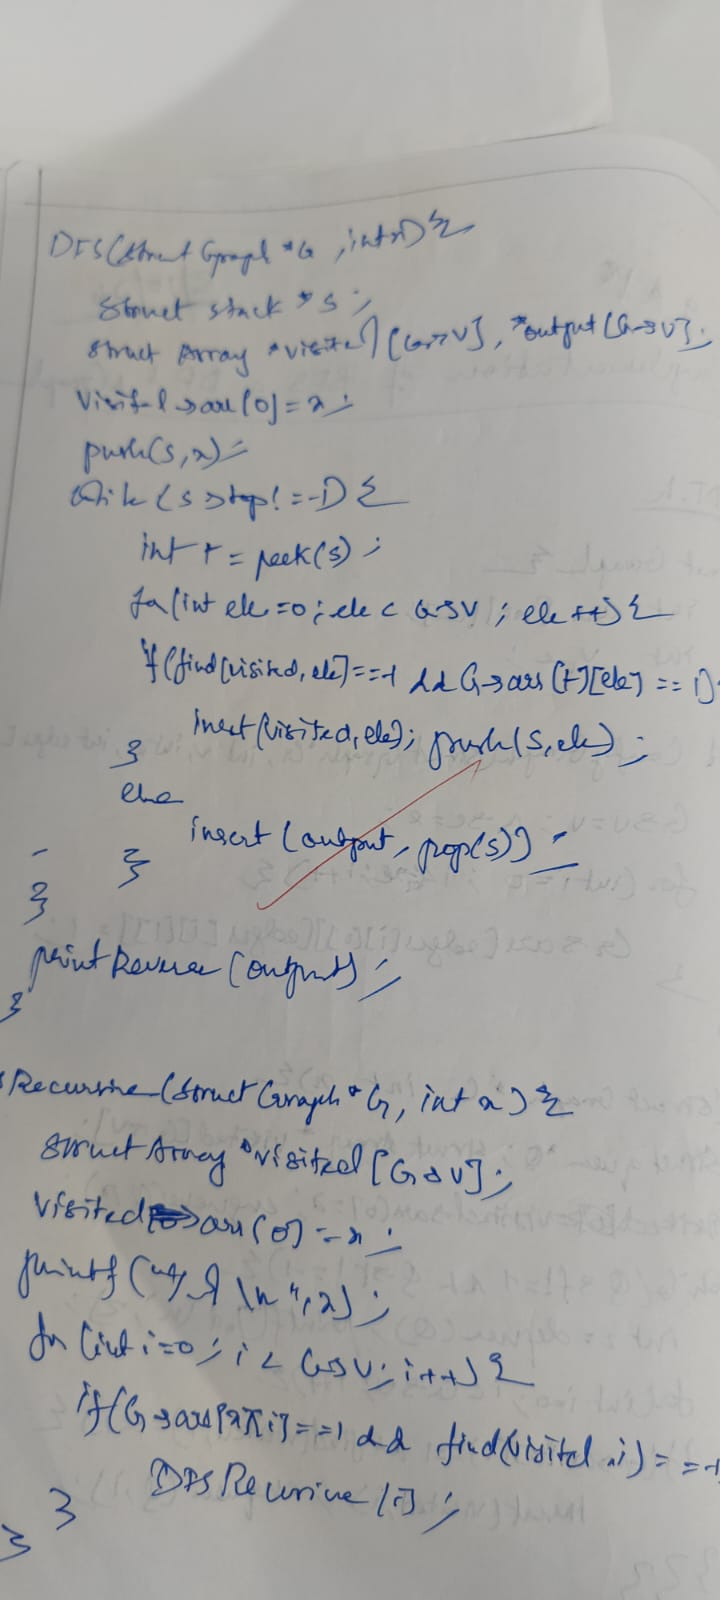 DFS(struct Graph *G, int x) {
struct stack *s;
struct Array *visited[G->V], *output[G->V];
visited->arr[0] = x;
push(s, x);
while (s->top != -1) {
int t = peek(s);
for (int ele = 0; ele < G->V; ele++) {
if (find(visited, ele) == -1 && G->arr[t][ele] == 1)
insert(visited, ele); push(s, ele);
}
else
insert (output, pop(s));
}
}
print Reverse (output);
}
Recursive (struct Graph *G, int x) {
struct Array *visited [G->V];
visited->arr[0] = x;
printf ("%d \n", x);
for (int i=0; i < G->V; i++) {
if (G->arr[x][i] == 1 && find(visited, i) == -1
DFS Recursive (i);
}
}